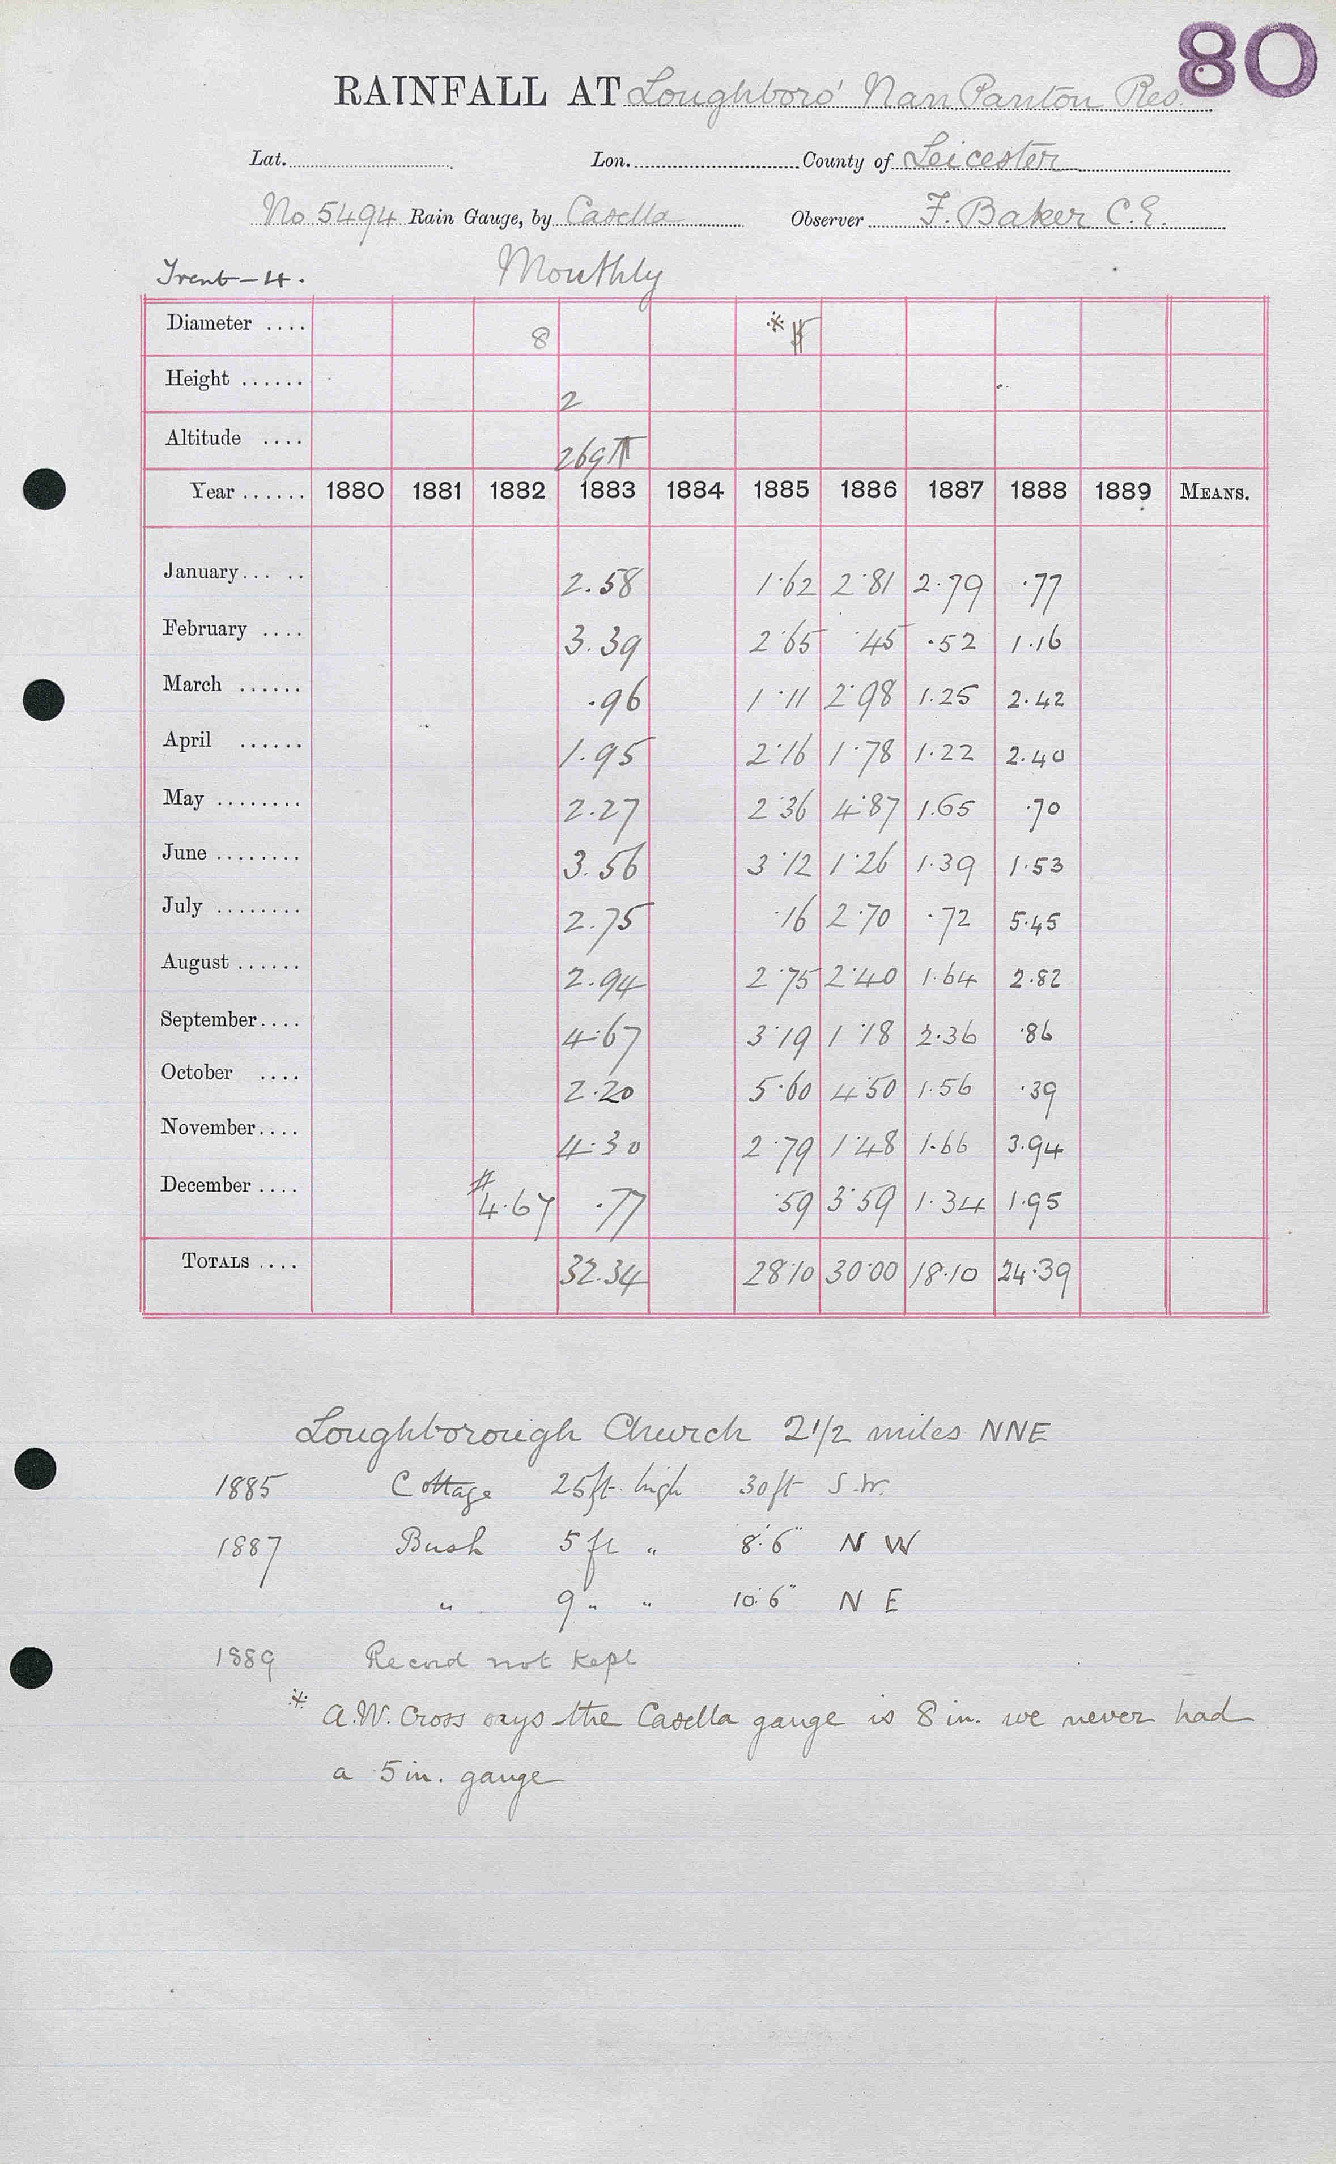 80
RAINFALL AT Loughboro' Nan Panton Res.
Lat. Lon. County of Leicester
No 5494 Rain Gauge, by Casella Observer F. Baker C.E.
Trent - 4. Monthly
Diameter .... 8 * 5
Height ...... 2
Altitude .... 269 T
Year ...... 1880 1881 1882 1883 1884 1885 1886 1887 1888 1889 MEANS.
January... .. 2.58 1.62 2.81 2.79 .77
February .... 3.39 2.65 .45 .52 1.16
March ...... .96 1.11 2.98 1.25 2.42
April ...... 1.95 2.16 1.78 1.22 2.40
May ........ 2.27 2.36 4.87 1.65 .70
June ........ 3.56 3.12 1.26 1.39 1.53
July ........ 2.75 .16 2.70 .72 5.45
August ...... 2.94 2.75 2.40 1.64 2.82
September.... 4.67 3.19 1.18 2.36 .86
October .... 2.20 5.60 4.50 1.56 .39
November.... 4.30 2.79 1.48 1.66 3.94
December .... # 4.67 .77 .59 3.59 1.34 1.95
TOTALS .... 32.34 28.10 30.00 18.10 24.39
Loughborough Church 2 1/2 miles NNE
1885 Cottage 25ft. high 30ft S.W.
1887 Bush 5 ft " 8'.6" N W
" 9 " " 10'.6" N E
1889 Record not kept
* A.W. Cross says the Casella gauge is 8 in. we never had
a 5 in. gauge